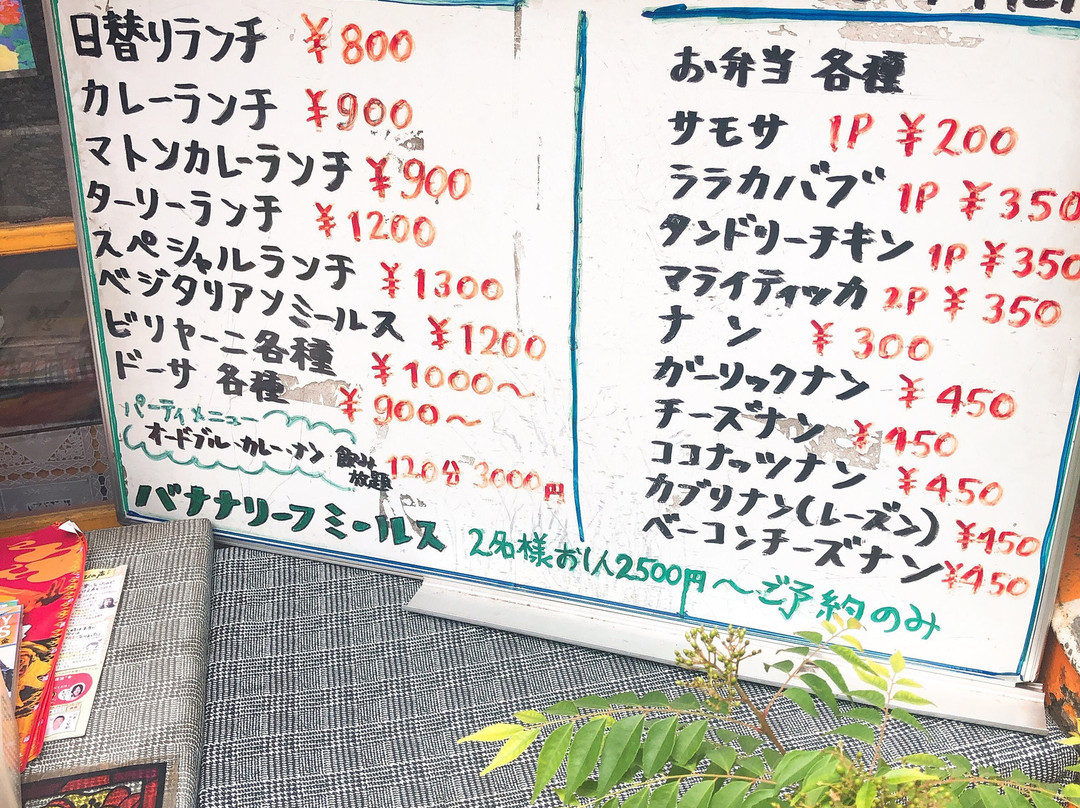 日替りランチ ¥800
カレーランチ ¥900
マトンカレーランチ ¥900
ターリーランチ ¥1200
スペシャルランチ ¥1300
ベジタリアンミールス ¥1200
ビリヤーニ各種 ¥1000〜
ドーサ 各種 ¥900〜
パーティメニュー
オードブル・カレー・ナン 飲み放題 120分 3000円
バナナリーフミールス 2名様お1人2500円〜ご予約のみ
お弁当 各種
サモサ 1P ¥200
ララカバブ 1P ¥350
タンドリーチキン 1P ¥350
マライティッカ 2P ¥350
ナン ¥300
ガーリックナン ¥450
チーズナン ¥450
ココナッツナン ¥450
カブリナン(レーズン) ¥450
ベーコンチーズナン ¥450